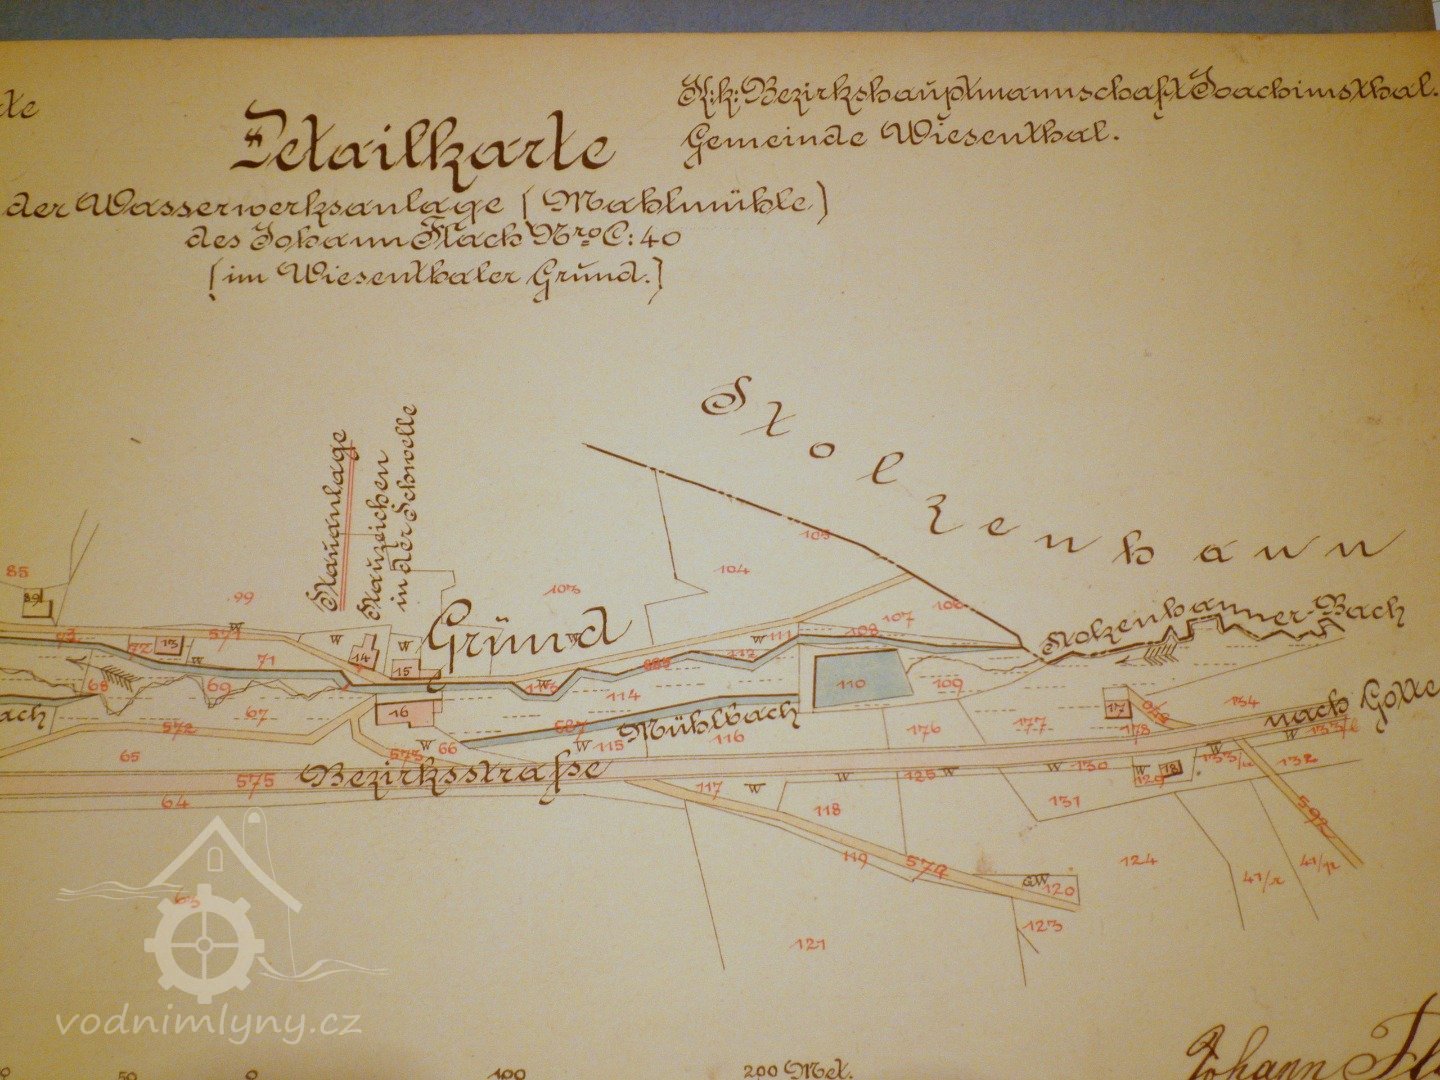 Detailkarte
der Wasserwerksanlage (Mahlmühle)
des Johann Flach Nro C: 40
(im Wiesenthaler Grund.)
K:k: Bezirkshauptmannschaft Joachimsthal.
Gemeinde Wiesenthal.
Stolzenhann
Stauanlage
Stauzeichen
in der Schwelle
Grund
Stolzenhanner-Bach
Mühlbach
Bezirksstraße
nach Gotte
ach
85
89
99
103
104
105
106
107
108
111
112
93
72
13
571
71
14
15
W
W
W
W
W
W
68
69
67
113
114
685
110
109
16
687
115
116
176
177
17
178
134
572
65
573
66
W
W
575
64
117
W
W
125
W
W
130
W
129
18
W
W
132
118
131
592
119
574
GW
120
124
41/2
63
121
123
vodnimlyny.cz
50
0
100
200 Met.
Johann Fl